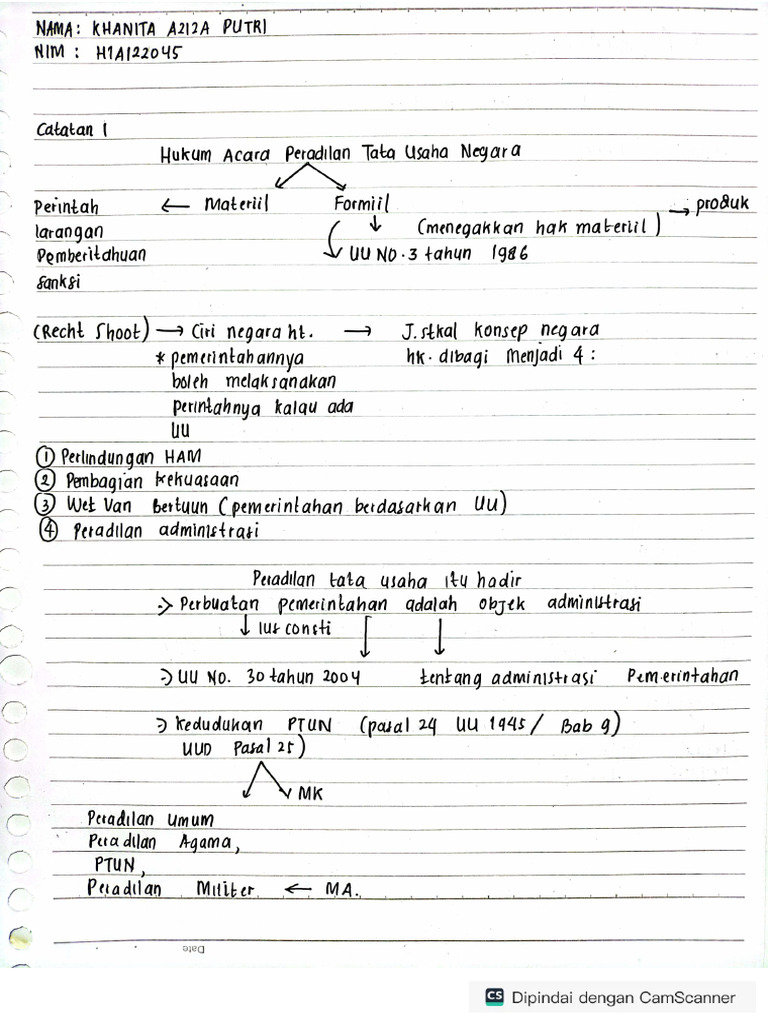 NAMA: KHANITA AZIZA PUTRI
NIM : H1A122045
Catatan 1
Hukum Acara Peradilan Tata Usaha Negara
Perintah ← Materiil Formiil → produk
larangan (menegakkan hak materiil)
Pemberitahuan UU NO.3 tahun 1986
sanksi
(Recht Shoot) → Ciri negara ht. → J.stkal konsep negara
* pemerintahannya hk. dibagi menjadi 4 :
boleh melaksanakan
perintahnya kalau ada
UU
① Perlindungan HAM
② Pembagian kekuasaan
③ Wet Van Bertuun (pemerintahan berdasarkan UU)
④ Peradilan administrasi
Peradilan tata usaha itu hadir
-> Perbuatan pemerintahan adalah objek administrasi
↓ ius consti
-> UU No. 30 tahun 2004 tentang administrasi Pemerintahan
-> Kedudukan PTUN (pasal 24 UU 1945 / Bab 9)
UUD Pasal 25)
MK
Peradilan Umum
Peradilan Agama,
PTUN,
Peradilan Militer ← MA.
Date
CS Dipindai dengan CamScanner